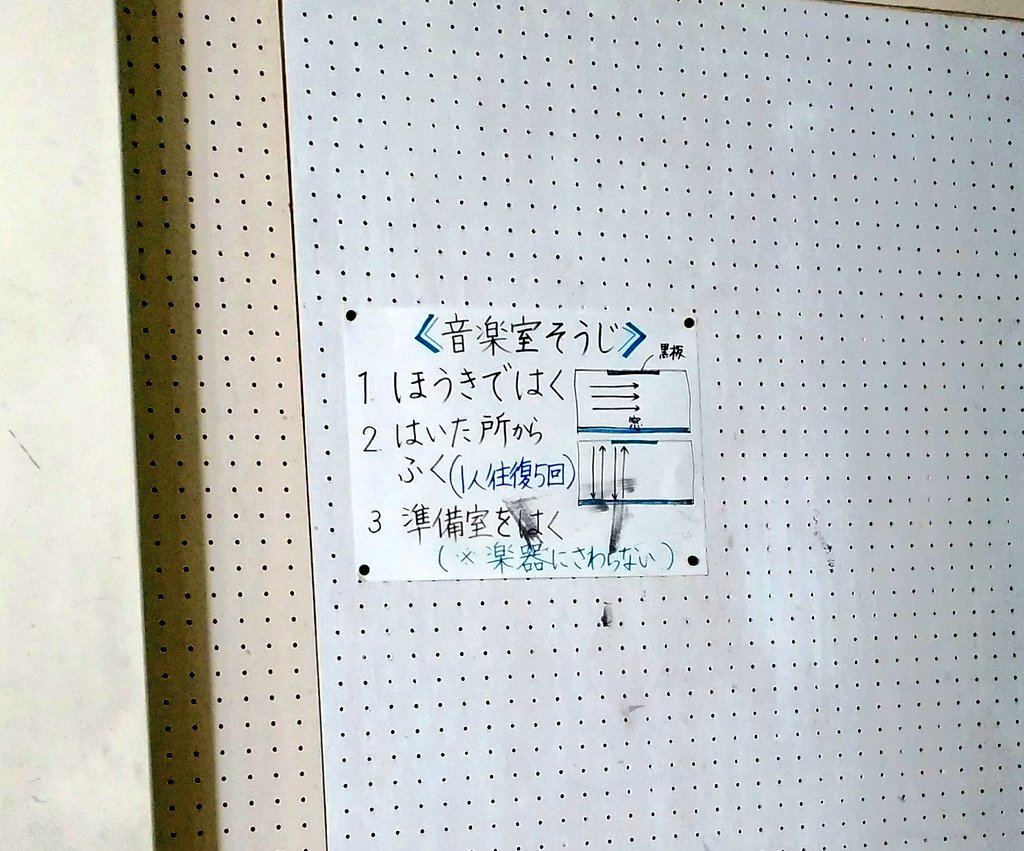 《音楽室そうじ》
黒板
1. ほうきではく
窓
2. はいた所から
ふく(1人往復5回)
3 準備室をはく
(※楽器にさわらない)